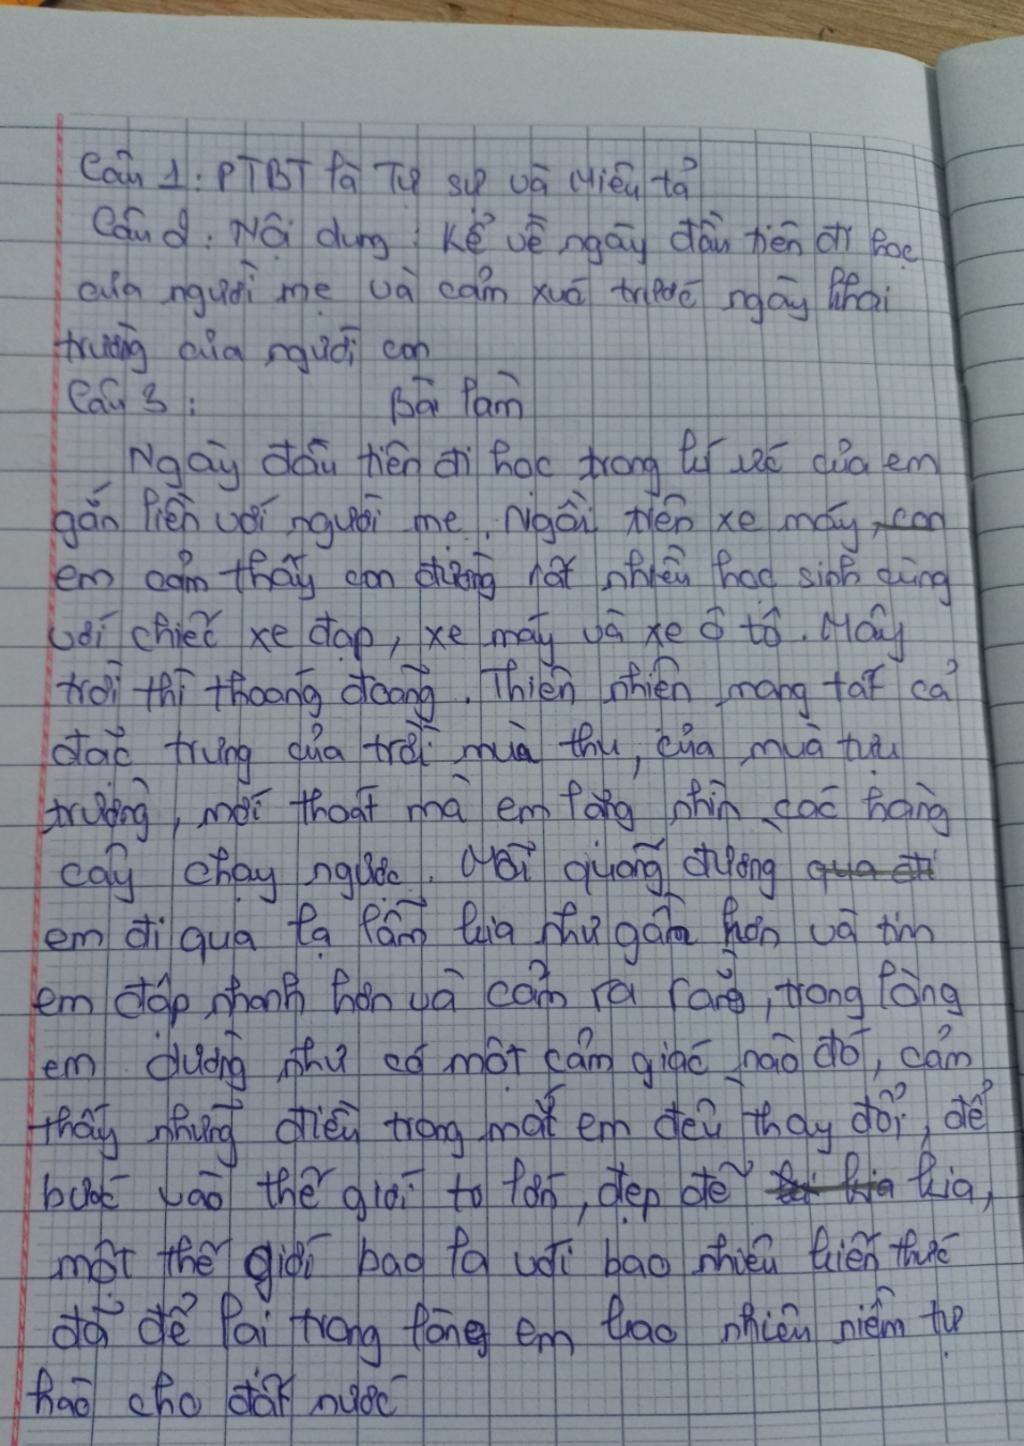 Câu 1: PTBT là Tự sự và Miêu tả
Câu 2: Nội dung: Kể về ngày đầu tiên đi học
của người mẹ và cảm xuc trước ngày khai
trường của người con
Câu 3: Bài làm
Ngày đầu tiên đi học trong kí ức của em
gắn liền với người mẹ. Ngồi trên xe máy, con
em cảm thấy con đường rất nhiều học sinh cùng
với chiếc xe đạp, xe máy và xe ô tô. Mây
trời thì thoang đoảng. Thiên nhiên mang tất cả
đặc trưng của trời mùa thu, của mùa tựu
trường, mới thoát mà em lặng nhìn các hàng
cây chạy ngược. Mỗi quãng đường qua đi
em đi qua lạ lẫm kia như gần hơn và tim
em đập nhanh hơn và cảm ra rằng, trong lòng
em dường như có một cảm giác nào đó, cảm
thấy những điều trong mắt em đều thay đổi, để
bước vào thế giới to lớn, đẹp đẽ kia,
một thế giới bao la với bao nhiêu kiến thức
đã để lại trong lòng em bao nhiêu niềm tự
hào cho đất nước